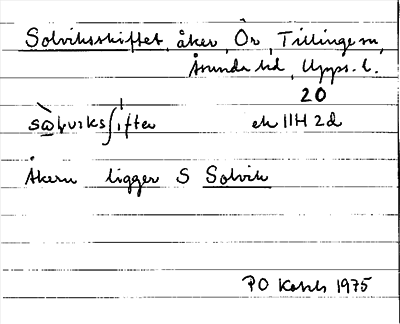 Solviksskiftet, åker, Ör, Tillinge sn,
Åsunda hd, Upps. l.
20
ek 11H 2d
Åkern ligger S Solvik
PO 1975